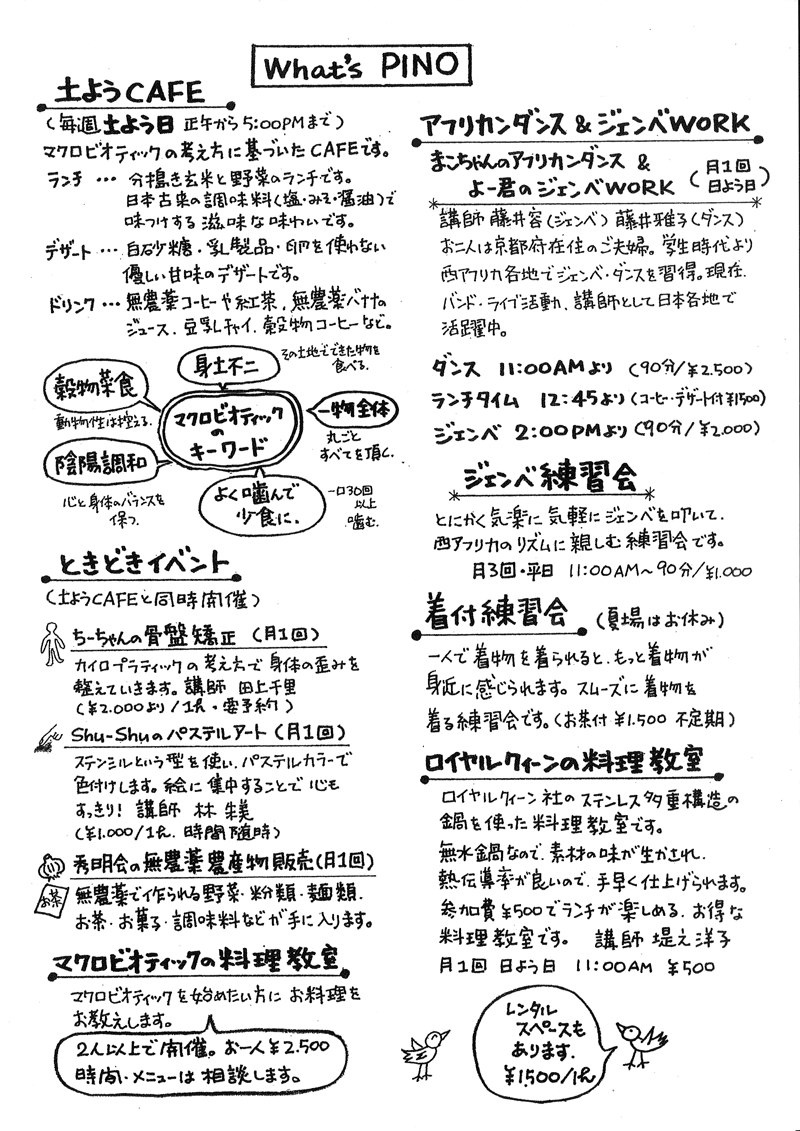 What's PINO
土ようCAFE
(毎週土よう日 正午から5:00PMまで)
マクロビオティックの考え方に基づいたCAFEです。
ランチ … 分搗き玄米と野菜のランチです。
日本古来の調味料(塩・みそ・醤油)で
味つけする滋味な味わいです。
デザート … 白砂糖・乳製品・卵を使わない
優しい甘味のデザートです。
ドリンク … 無農薬コーヒーや紅茶、無農薬バナナの
ジュース、豆乳チャイ、穀物コーヒーなど。
身土不二
その土地でできた物を
食べる。
穀物菜食
動物性は控える。
マクロビオティック
の
キーワード
一物全体
丸ごと
すべてを頂く。
陰陽調和
心と身体のバランスを
保つ。
よく噛んで
少食に。
一口30回
以上
噛む。
ときどきイベント
(土ようCAFEと同時開催)
ちーちゃんの骨盤矯正 (月1回)
カイロプラティックの考え方で身体の歪みを
整えていきます。講師 田上千里
(¥2.000より/1h・要予約)
Shu-Shuのパステルアート(月1回)
ステンシルという型を使い、パステルカラーで
色付けします。絵に集中することで心も
すっきり! 講師 林 朱美
(¥1.000/1h. 時間随時)
秀明会の無農薬農産物販売(月1回)
お茶
無農薬で作られる野菜・粉類・麺類・
お茶・お菓子・調味料などが手に入ります。
マクロビオティックの料理教室
マクロビオティックを始めたい方にお料理を
お教えします。
2人以上で開催。お一人¥2.500
時間・メニューは相談します。
アフリカンダンス&ジェンベWORK
まこちゃんのアフリカンダンス &
よー君のジェンベWORK (月1回 日よう日)
講師 藤井容(ジェンベ) 藤井雅子(ダンス)
お二人は京都府在住のご夫婦。学生時代より
西アフリカ各地でジェンベ・ダンスを習得。現在、
バンド・ライブ活動、講師として日本各地で
活躍中。
ダンス 11:00AMより (90分/¥2.500)
ランチタイム 12:45より(コーヒー・デザート付¥1500)
ジェンベ 2:00PMより(90分/¥2.000)
ジェンベ練習会
とにかく気楽に気軽にジェンベを叩いて、
西アフリカのリズムに親しむ練習会です。
月3回・平日 11:00AM〜90分/¥1.000
着付練習会 (夏場はお休み)
一人で着物を着られると、もっと着物が
身近に感じられます。スムーズに着物を
着る練習会です。(お茶付¥1.500 不定期)
ロイヤルクィーンの料理教室
ロイヤルクィーン社のステンレス多重構造の
鍋を使った料理教室です。
無水鍋なので、素材の味が生かされ、
熱伝導率が良いので、手早く仕上げられます。
参加費¥500でランチが楽しめる、お得な
料理教室です。 講師 堤之洋子
月1回 日よう日 11:00AM ¥500
レンタル
スペースも
あります。
¥1,500/1h